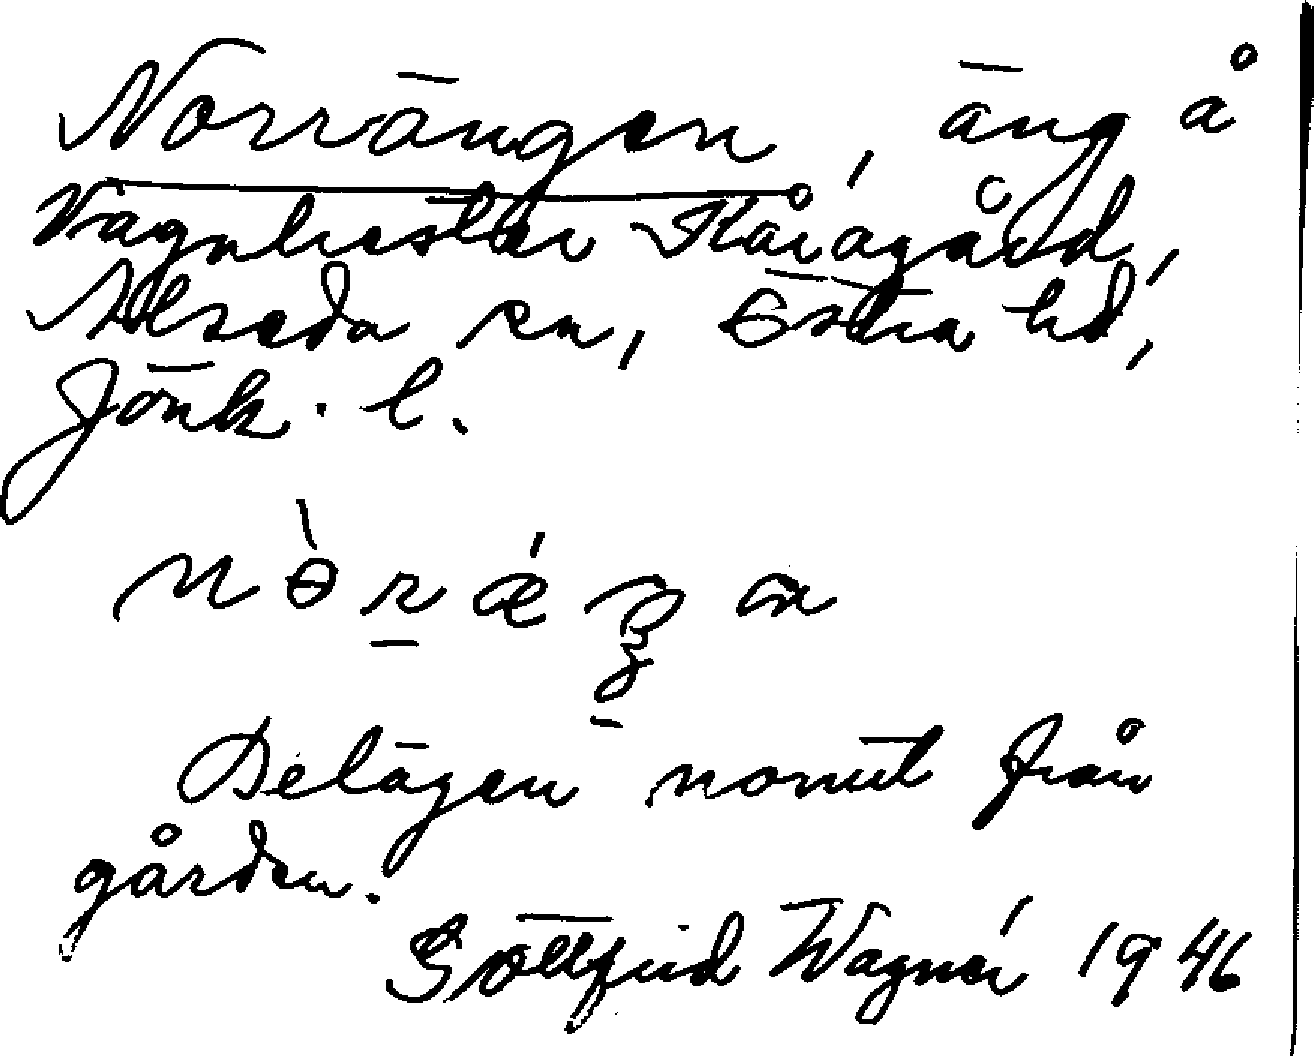 Norrängen, äng å
Vagnhester Kåragård,
Alseda sn, Östra hd,
Jönk. l.
Delägen norrut från
gården.
Gottfrid Wagnér 1946